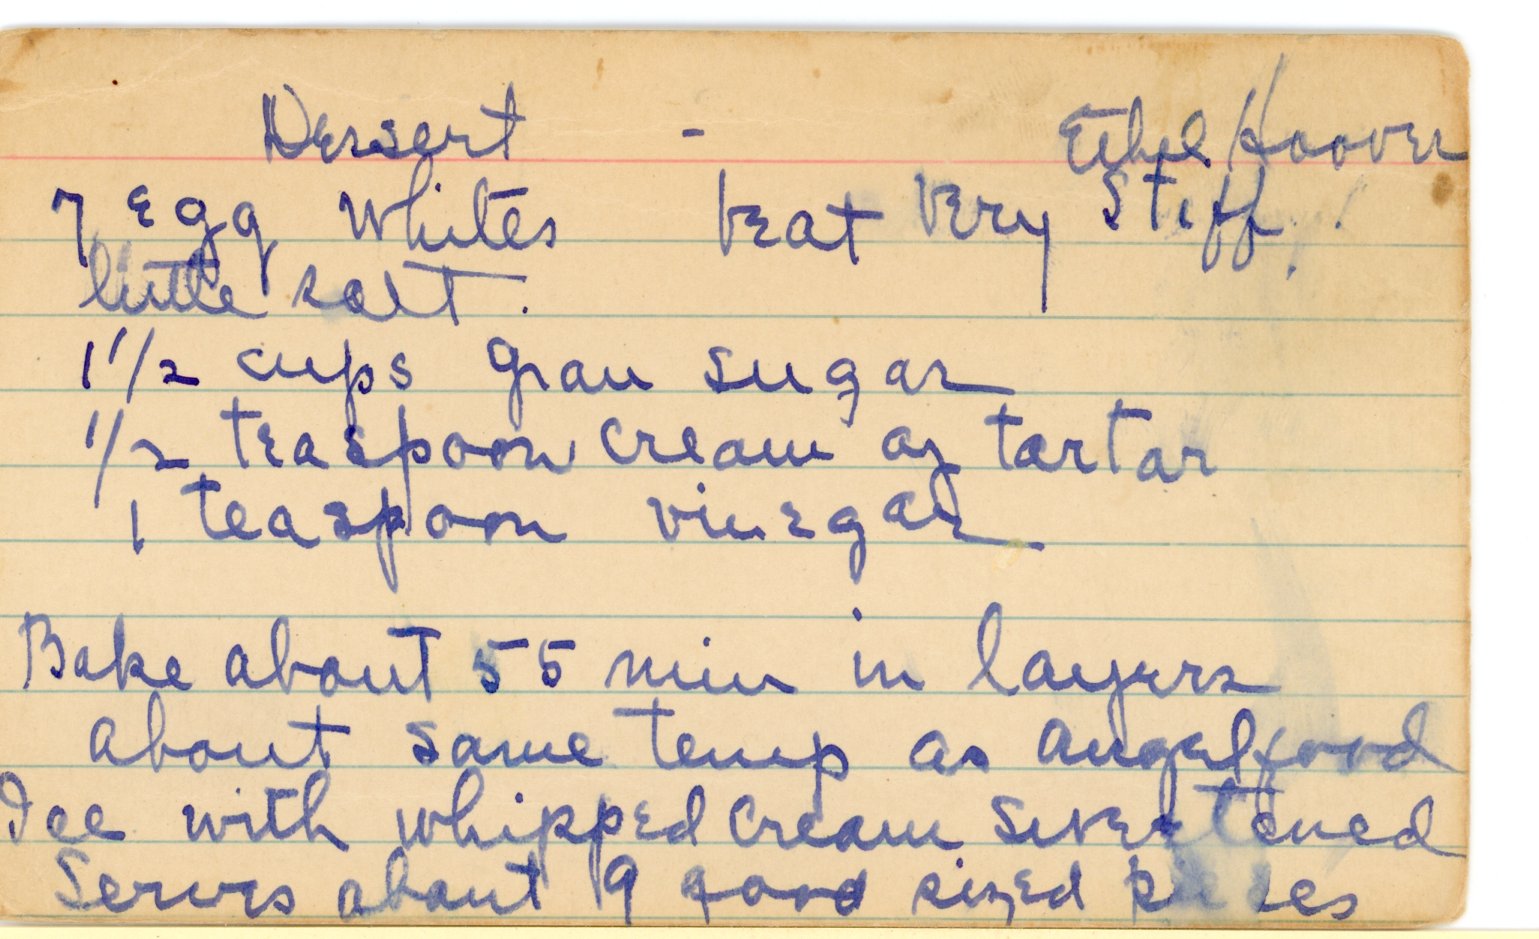 Dessert - Ethel Hoover
7 Egg Whites beat very Stiff.
little salt.
1 1/2 cups gran sugar
1/2 teaspoon cream of tartar
1 teaspoon vinegar
Bake about 55 min in layers
about same temp as angelfood
Ice with whipped cream sweetened
Serves about 9 good sized pieces